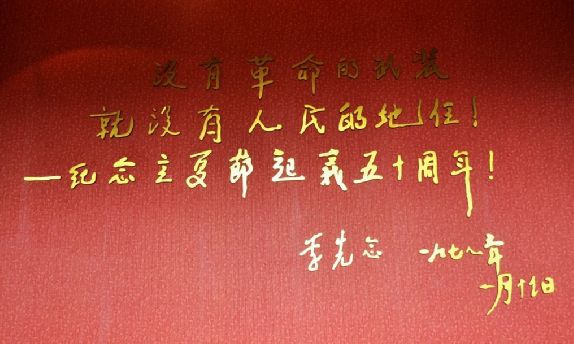 没有革命的武装
就没有人民的地位！
—纪念立夏节起义五十周年！
李先念 一九七九年
一月十七日